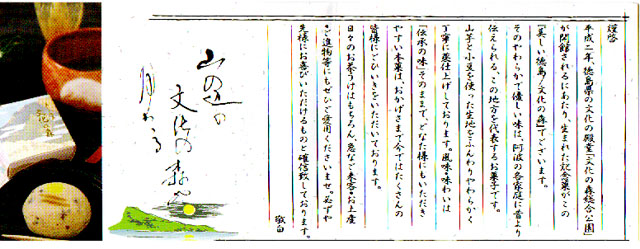 謹啓
平成二年、徳島県の文化の殿堂「文化の森総合公園」
が開館されるにあたり、生まれた記念菓がこの
「美しい徳島/文化の森」でございます。
そのやわらかで優しい味は、阿波の各家庭に昔より
伝えられる、この地方を代表するお菓子です。
山芋と小豆を使った生地をふんわりやわらかく
丁寧に蒸し仕上げしております。風味・味わいは
「伝承の味」そのままで、どなた様にもいただき
やすい本菓は、おかげさまで今ではたくさんの
皆様にごひいきをいただいております。
日々のお茶うけはもちろん、急なご来客・お土産
・ご進物等にもぜひご愛用くださいませ。必ずや
先様にお喜びいただけるものと確信致しております。
敬白
山の辺の
文化の森
月わたる